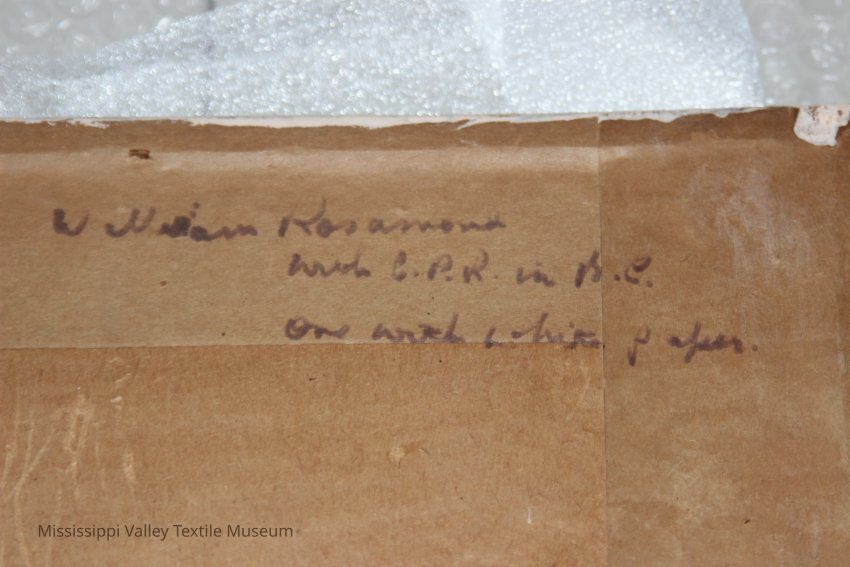 William Rosamond
with C.P.R. in B.C.
One with white paper.
Mississippi Valley Textile Museum